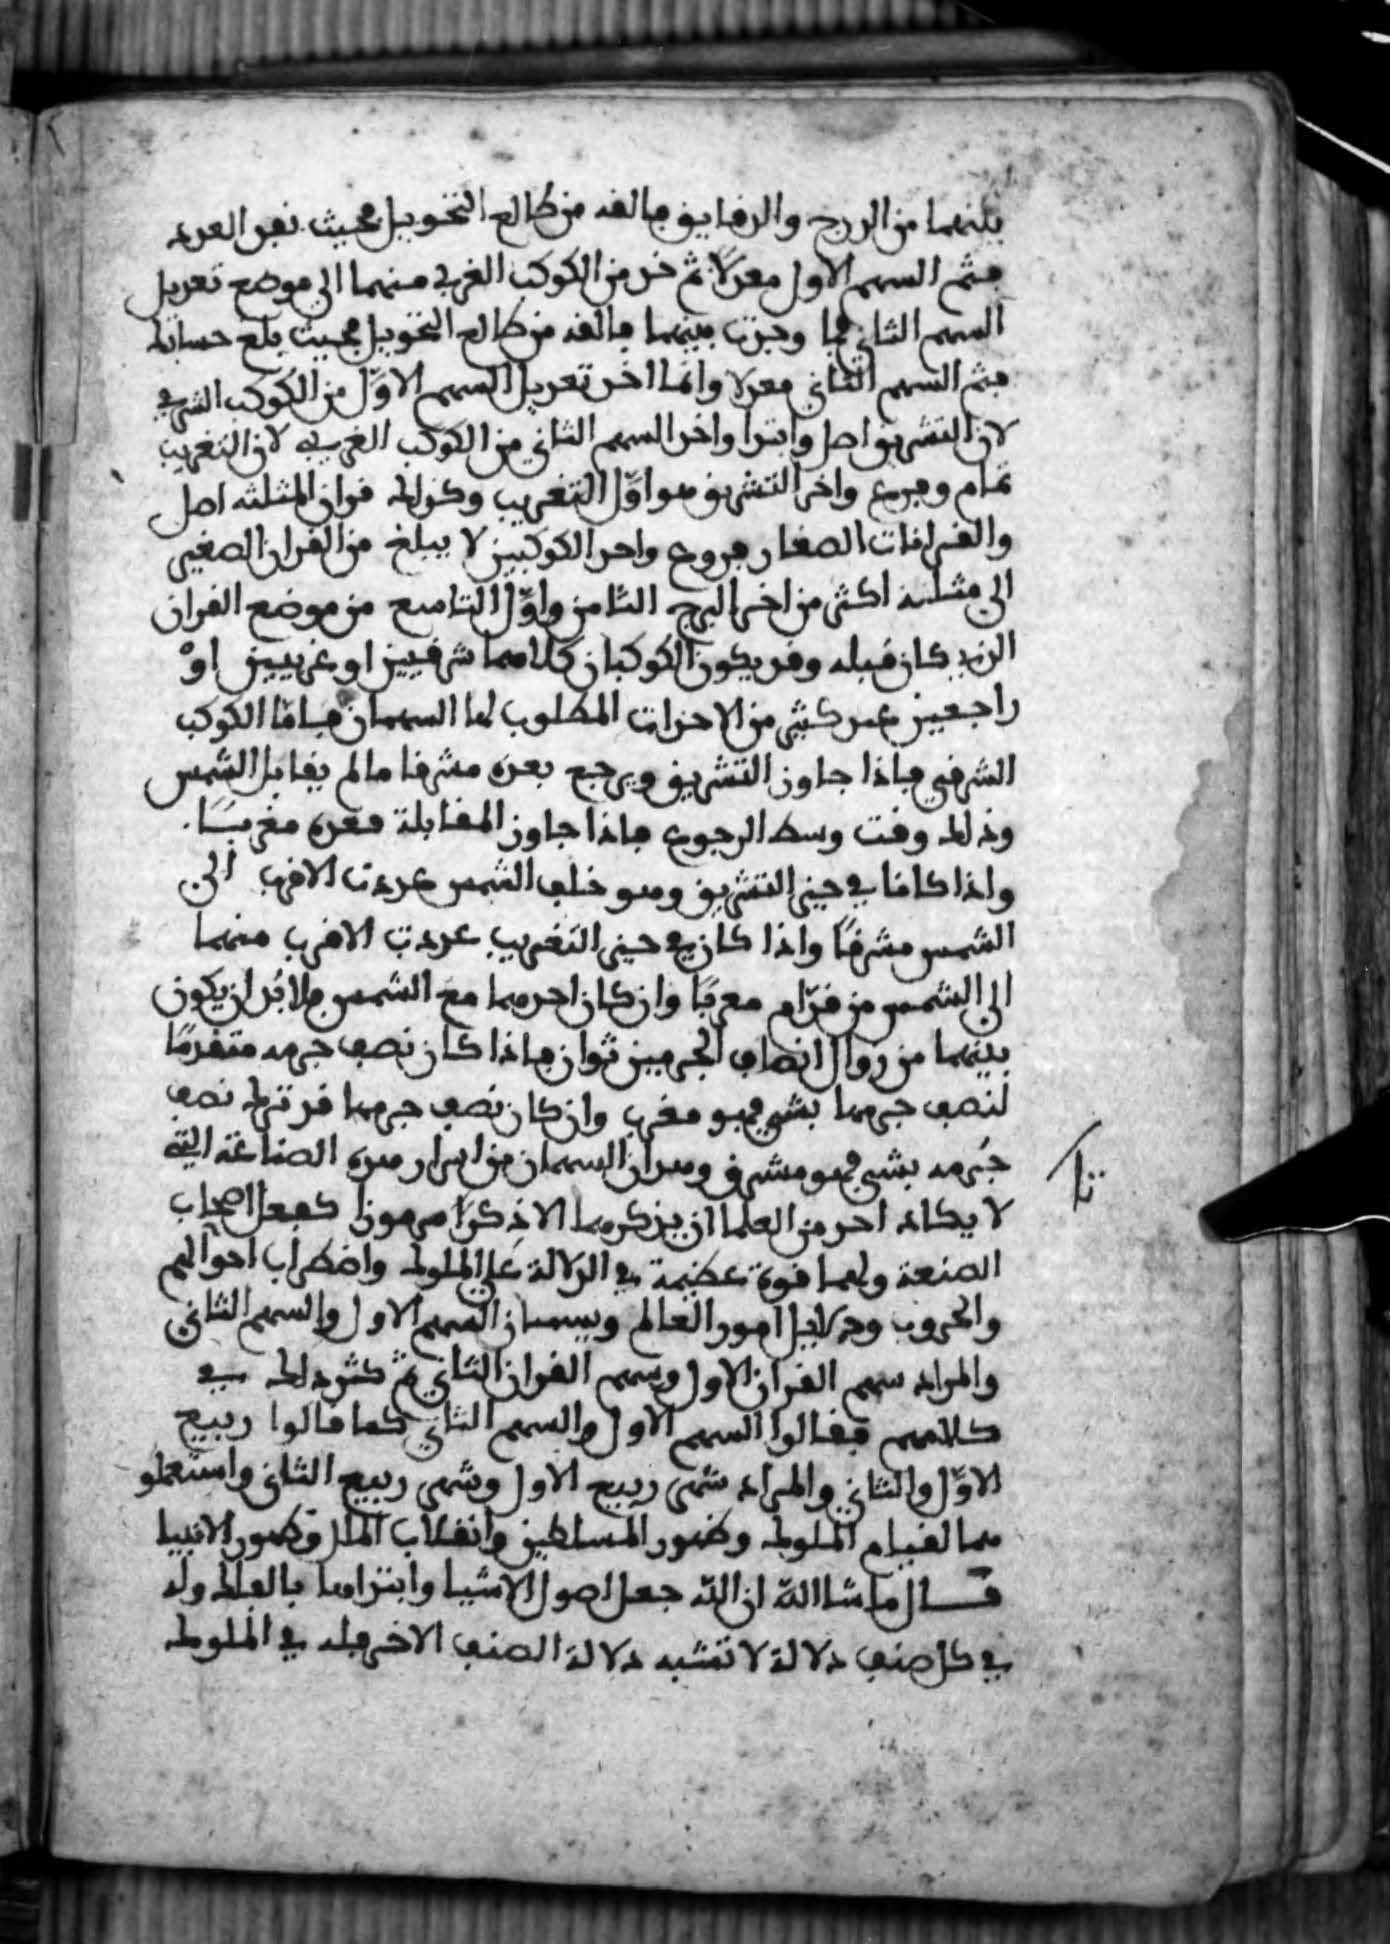 بينهما من الدرج والدقايق فالقه من طالع التحويل فحيث نفد العدد
فثم السهم الاول معدلا ثم خذ من الكوكب الغربي منهما الى موضع تعديل
السهم الثاني فما وجدت بينهما فالقه من طالع التحويل فحيث بلغ حسابك
فثم السهم الثاني معدلا وانما اخذ تعديل السهم الاوّل من الكوكب الشرقي
لان التشريق اصل وابتدا واخذ السهم الثاني من الكوكب الغربي لان التغريب
تمام وفرع واخر التشريق هو اوّل التغريب وكذلك قران المثلثه اصل
والقرانات الصغار فروع واحد الكوكبين لا يبلغ من القران الصغير
الى مثله اكثر من اخر البرج الثامن واوّل التاسع من موضع القران
الذي كان قبله وقد يكون الكوكبان كلاهما شرقيين او غربيين اوْ
راجعين عند كثير من الاحزات المطلوب لها السهمان فامّا الكوكب
الشرقي فاذا جاوز التشريق ويرجع بعده مشرقا مالم يقابل الشمس
وذلك وقت وسط الرجوع فاذا جاوز المقابلة فعده مغربًا.
واذا كانا في حيز التشريق وهو خلف الشمس عددت الاقرب الى
الشمس مشرقًا واذا كان في حيز التغريب عددت الاقرب منهما
الى الشمس من قدّام مغربًا وان كان احدهما مع الشمس فلا بُد ان يكون
بينهما من زوال انصاف الجرمين ثوان فاذا كان نصف جرمه متقدمًا
لنصف جرمها بشي فهو مغرب وان كان نصف جرمها قد ترك نصف
جُرمه بشي فهو مشرق وهذان السهمان من اسرار هذه الصناعة التي
لا يكاد احد من العلما ان يذكرهما الا ذكرًا مرموزا كفعل اصحاب
الصنعة ولهما قوة عظيمة في الدلالة على الملوك واضطراب احوالهم
والحروب ودلايل امور العالم ويسميان السهم الاول والسهم الثاني
والمراد سهم القران الاول وسهم القران الثاني ثم كثر ذلك في
كلامهم فقالوا السهم الاول والسهم الثاني كما قالوا ربيع
الاوّل والثاني والمراد شهر ربيع الاول وشهر ربيع الثاني واستعملو
هما لقيام الملوك وظهور المسلطين وانقلاب الملل وظهور الانبيا
قـــال ما شا الله ان الله جعل اصول الاشيا وابتداها بالفلك وله
في كل صنف دلالة لا تشبه دلالة الصنف الاخر فله في الملوك